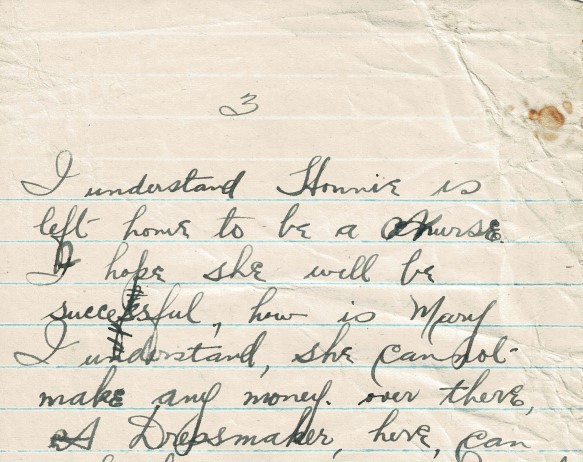 3
I understand Honnie is
left home to be a Nurse.
I hope she will be
successful, how is Mary
I understand, she cannot
make any money. over there,
A Dressmaker, here, can